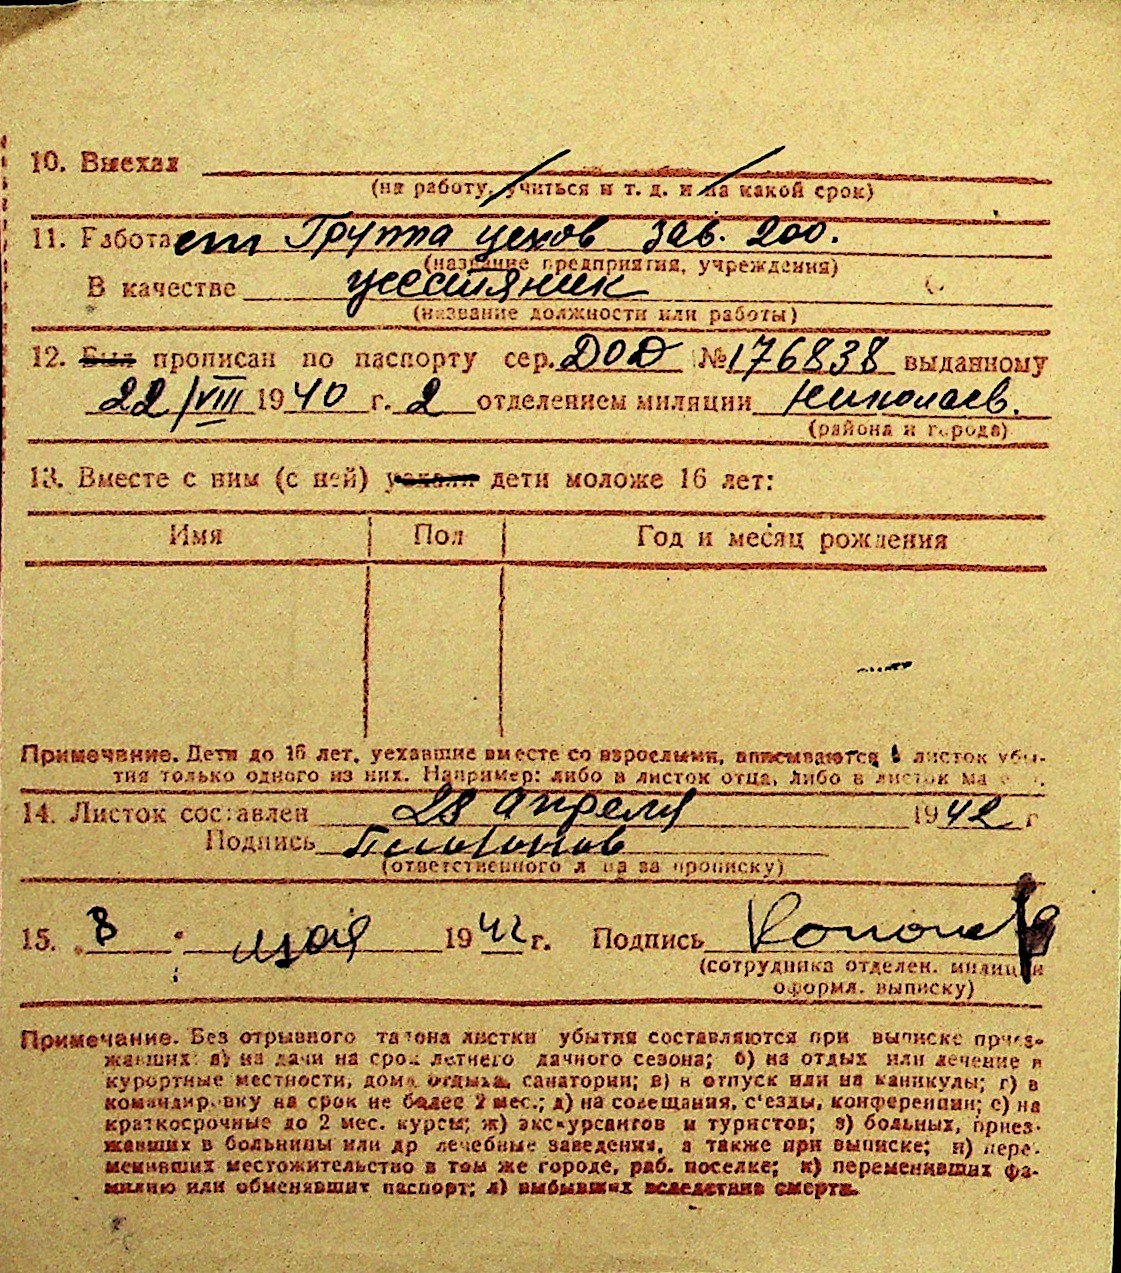 10. Выехал
(на работу, учиться и т. д. и на какой срок)
11. Работает Группа цехов зав. 200.
(название предприятия, учреждения)
В качестве
(название должности или работы)
12. Был прописан по паспорту сер. ДОД № 176838 выданному
22/VIII 1940 г. 2 отделением милиции Николаев.
(района и города)
13. Вместе с ним (с ней) уехали дети моложе 16 лет:
Имя Пол Год и месяц рождения
Примечание. Дети до 16 лет, уехавшие вместе со взрослыми, вписываются в листок убы-
тия только одного из них. Например: либо в листок отца, либо в листок
14. Листок составлен 28 апреля 1942 г
Подпись
(ответственного лица за прописку)
15. 8 мая 1942 г. Подпись
(сотрудника отделен. милиции
оформл. выписку)
Примечание. Без отрывного талона листки убытия составляются при выписке приез-
жавших: а) на дачи на срок летнего дачного сезона; б) на отдых или лечение в
курортные местности, дома отдыха, санатории; в) в отпуск или на каникулы; г) в
командировку на срок не более 2 мес.; д) на совещания, с'езды, конференции; е) на
краткосрочные до 2 мес. курсы; ж) экскурсантов и туристов; з) больных, приез-
жавших в больницы или др лечебные заведения, а также при выписке; и) пере-
менивших местожительство в том же городе, раб. поселке; к) переменивших фа-
милию или обменявших паспорт; л) выбывших вследствие смерти.